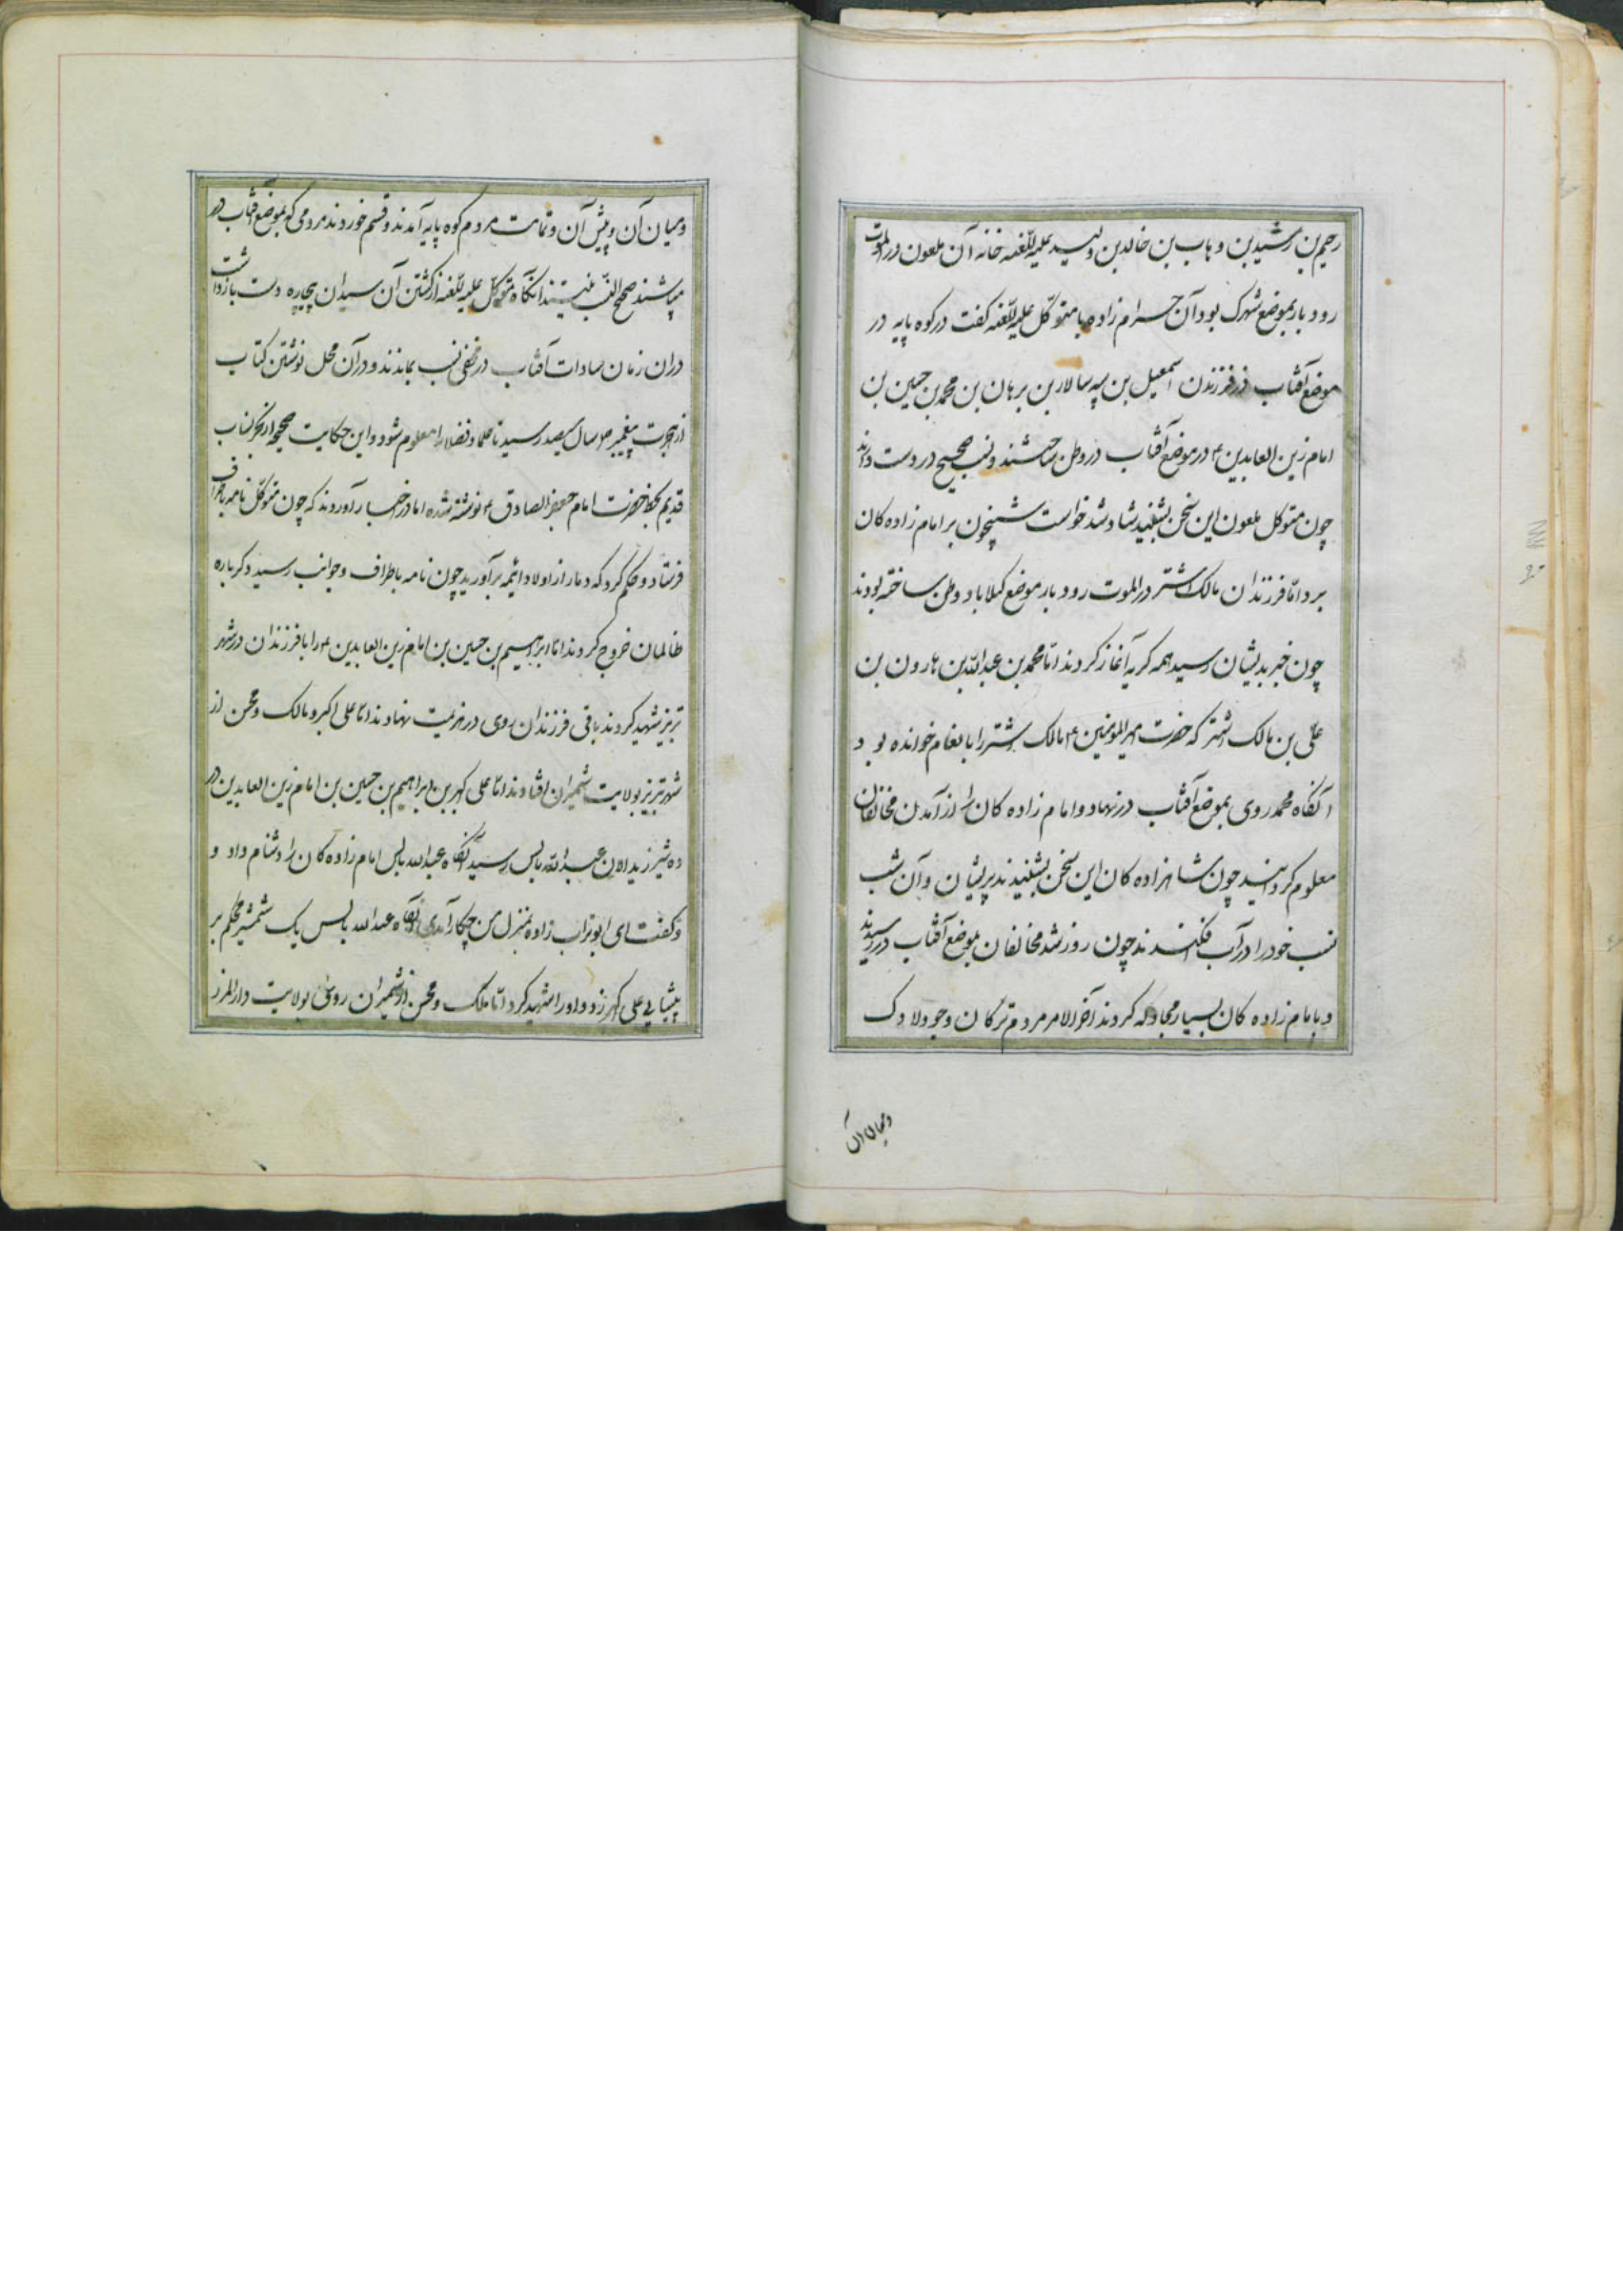 رحیم بن رشید بن وهاب بن خالد بن ولید علیه اللعنه خانه آن ملعون در الموت
رودبار بموضع شهرک بود آن حرام زاده با متوکل علیه اللعنه کفت در کوه پایه در
موضع آفتاب در فرزندن اسمعیل بن سپه سالار بن برهان بن محمد بن حسین بن
امام زین العابدین ع در موضع آفتاب در وطن ساختند و نسب صحیح در دست دارند
چون متوکل ملعون این سخن بشنید شاد شد خواست شبیخون بر امام زاده کان
برد امّا فرزندان مالک اشتر در الموت رودبار موضع کیلاباد وطن ساخته بودند
چون خبر بدیشان رسید همه کریه آغاز کردند امّا محمد بن عبدالله بن هارون بن
علی بن مالک اشتر که حضرت امیرالمؤمنین ع مالک اشتر را خوانده بود
آنکاه محمد روی بموضع آفتاب در نهاد و امام زاده کان را از آمدن مخالفان
معلوم کردانید چون شاهزاده کان این سخن بشنیدند پریشان و آن شب
نسب خود را در آب فکندند چون روز شد مخالفان بموضع آفتاب در رسیدند
و با امام زاده کان بسیار مجادله کردند آخر الامر مردم ترکان و جولادک
و میان آن
و میان آن و پیش آن و تمامت مردم کوه پایه آمدند و قسم خوردند مردمی که بموضع آفتاب در
میباشند صحیح النسب نیستند آنکاه متوکل علیه اللعنه از کشتن آن سیدان بیچاره دست بازداشت
در ان زمان سادات آفتاب در مخفی نسب بماندند و در آن محل نوشتن کتاب
از هجرت پیغمبر ص سال سیصد رسید تا علما و فضلا را معلوم شود و این حکایت صحیح از بحر انساب
قدیم بخط حضرت امام جعفر الصادق ع نوشته شده اما در اخبار آوردند که چون متوکل نامه باطراف
فرستاد و حکم کرد که دمار از اولاد ائمه برآورید چون نامه باطراف و جوانب رسید دکرباره
ظالمان خروج کردند امّا ابراهیم بن حسین بن امام زین العابدین ع را با فرزندان در شهر
تبریز شهید کردند باقی فرزندان روی در هزیمت نهادند امّا علی اکبر و مالک و محسن از
شهر تبریز بولایت شمیران افتادند امّا علی کهر بن ابراهیم بن حسین بن امام زین العابدین در
ده شیرزیدالان عبدالله بالیس رسید آنکاه عبدالله بالیس امام زاده کان را دشنام داد و
و کفت ای ابوتراب زاده بمنزل من چکار آمدی آنکاه عبدالله بالیس یک شمشیر محکم بر
پیشانی علی کهر زد و او را شهید کرد امّا ملک و محسن از شمیران روی بولایت دارالمرز